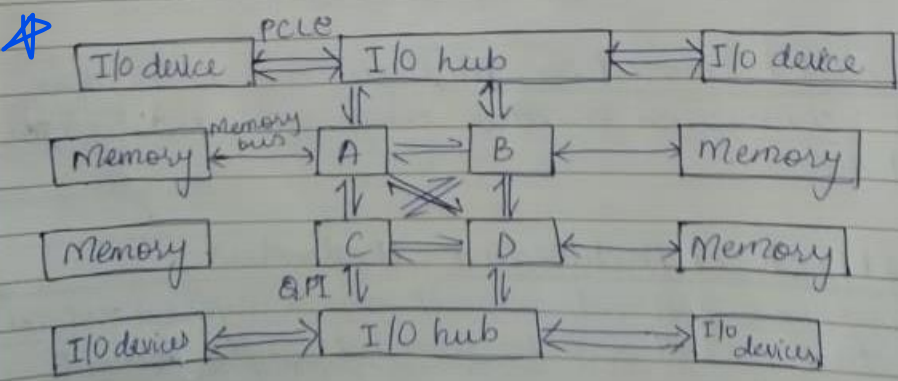 PCLe
I/O device I/O hub I/O device
Memory bus
Memory A B Memory
Memory C D Memory
QPI
I/O devices I/O hub I/O devices